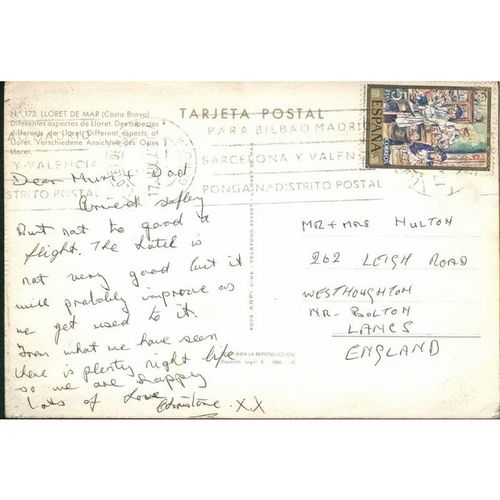 N.º 173. LLORET DE MAR (Costa Brava)
Diferentes aspectos de Lloret. Des aspectes
differents de Lloret. Different aspects of
Lloret. Verschiedene Ansichten des Ortes
Lloret.
TARJETA POSTAL
PARA BILBAO MADRID
BARCELONA Y VALEN
PONGA N.º DISTRITO POSTAL
Y VALENCIA
STRITO POSTAL
ESPAÑA
CORREOS
Dear Mum & Dad
Arrived safley
But not to good a
flight. The Hotel is
not very good but it
will probably improve as
we get used to it.
From what we have seen
there is plenty night life
so we are happy
Lots of Love Christine. X.X
MR + MRS HULTON
202 LEIGH ROAD
WESTHOUGHTON
NR. BOLTON
LANCS
ENGLAND
FOTO ARPI
LA REPRODUCCION